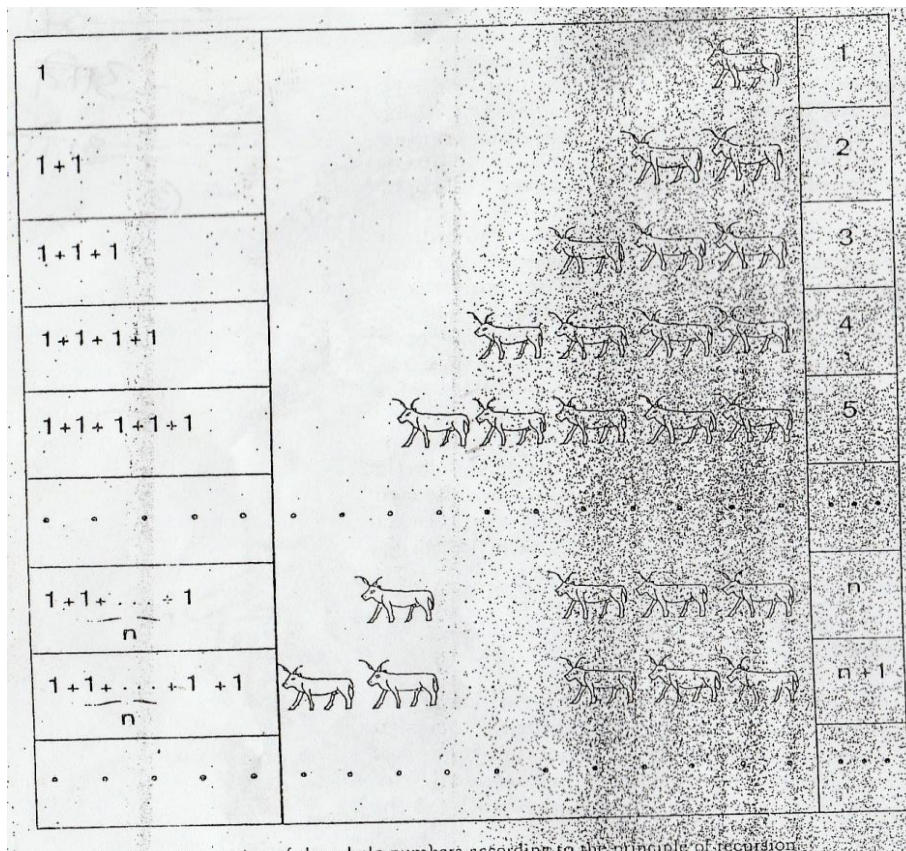 1 1
1 + 1 2
1 + 1 + 1 3
1 + 1 + 1 + 1 4
1 + 1 + 1 + 1 + 1 5
. . . . . . . . . . . . . . . . . . .
1 + 1 + . . . + 1 n
n
1 + 1 + . . . + 1 + 1 n + 1
n
. . . . . . . . . . . . . . . . . . .
numbers according to the principle of recursion